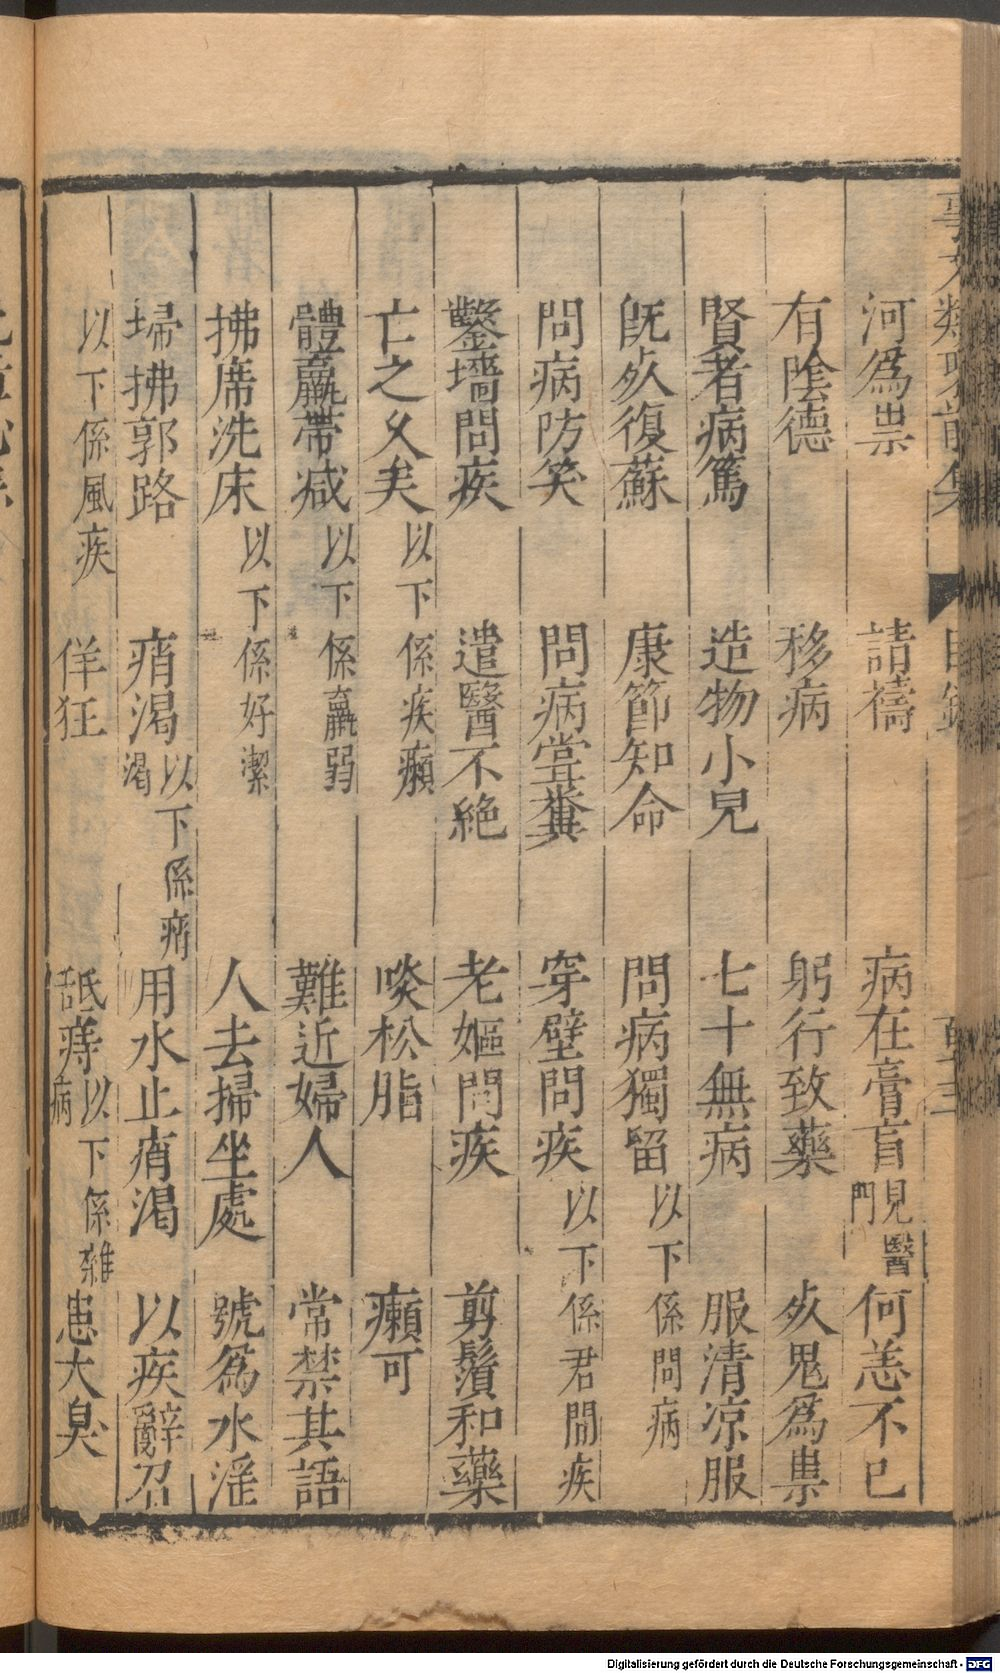 河為祟　請禱　病在膏肓見醫門　何恙不已
有陰德　移病　躬行致藥　㱙鬼為祟
賢者病篤　造物小兒　七十無病　服清凉服
旣㱙復蘇　康節知命　問病獨留以下係問病
問病防笑　問病甞糞　穿壁問疾以下係君問疾
鑿墻問疾　遣醫不絶　老嫗問疾　剪鬚和藥
亡之久矣以下係疾癩　啖松脂　癩可
體羸帶减以下係羸弱　難近婦人　常禁其語
拂席洗床以下係好潔　人去掃坐處　號為水淫
埽拂郭路　痟渴以下係痟渴　用水止痟渴　以疾辭召
以下係風疾　佯狂　舐痔以下係雜病　患大臭
Digitalisierung gefördert durch die Deutsche Forschungsgemeinschaft - DFG